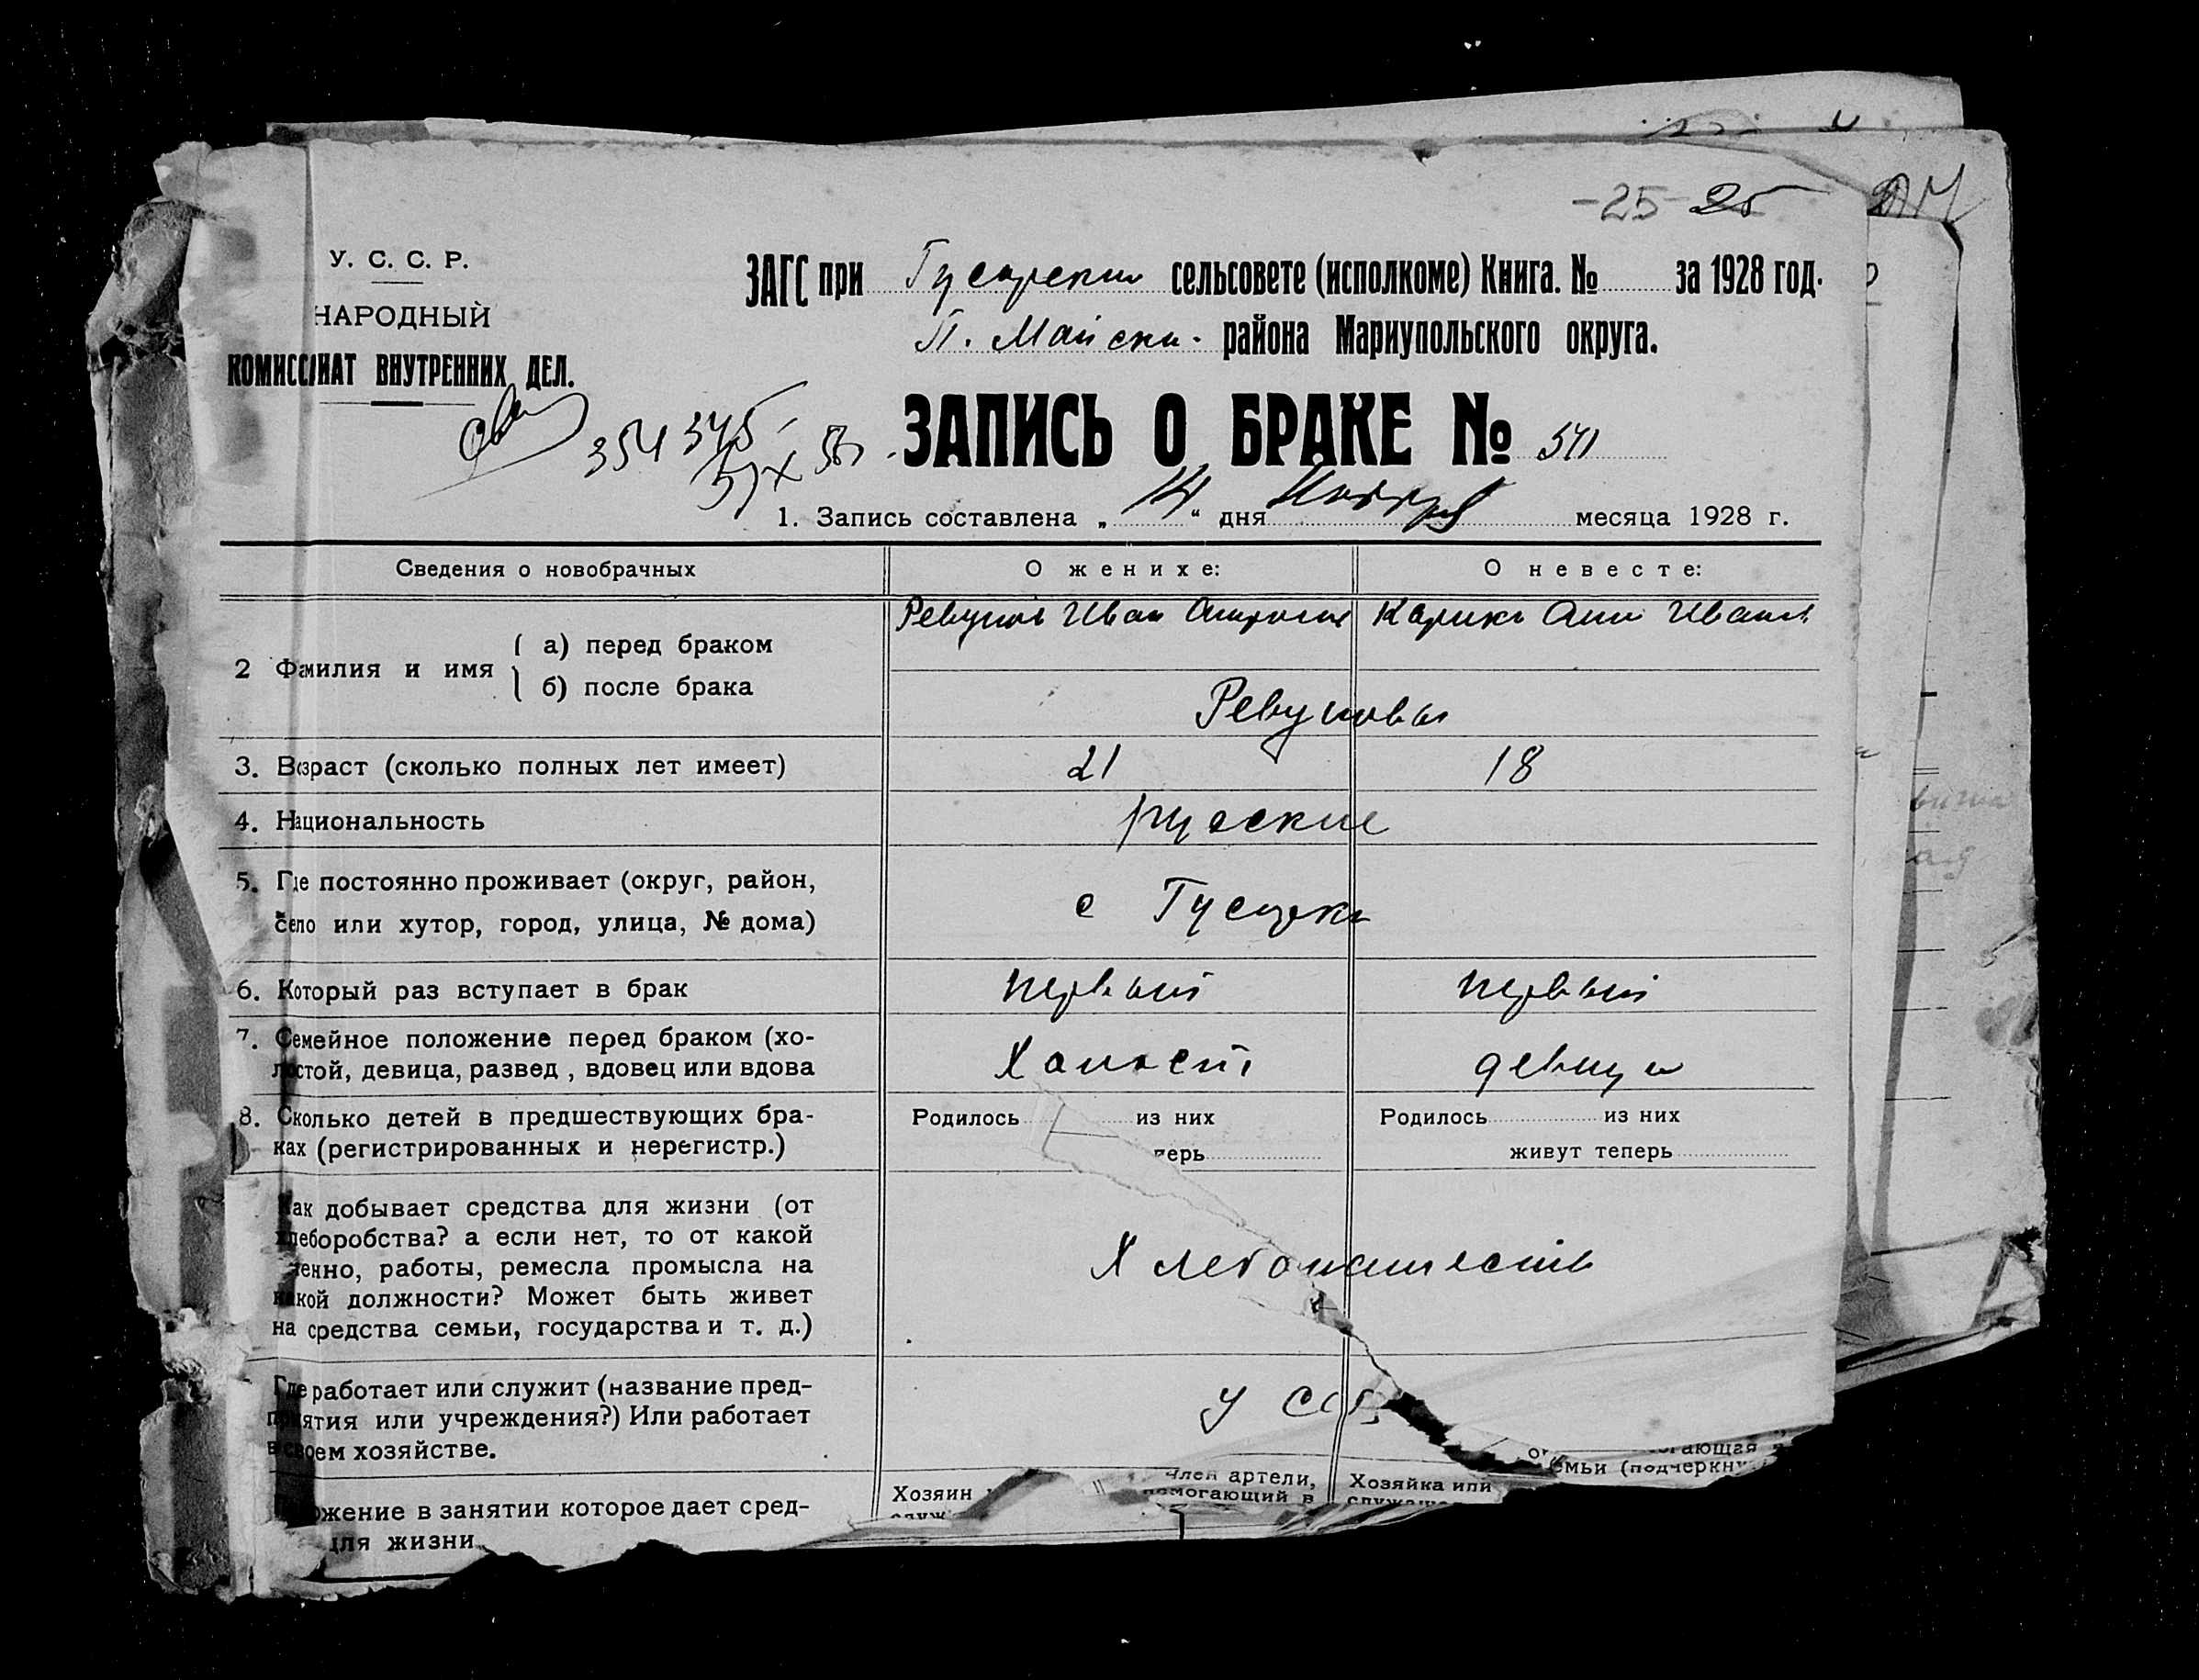 -25- 25
У. С. С. Р.
НАРОДНЫЙ
КОМИССАРИАТ ВНУТРЕННИХ ДЕЛ.
ЗАГС при сельсовете (исполкоме) Книга. № за 1928 год.
П. Майски. района Мариупольского округа.
354 345
ЗАПИСЬ О БРАКЕ № 541
1. Запись составлена „ 14 “ дня Ноября месяца 1928 г.
Сведения о новобрачных О женихе: О невесте:
Иван
2 Фамилия и имя а) перед браком
б) после брака
Ревуновы
3. Возраст (сколько полных лет имеет) 21 18
4. Национальность русские
5. Где постоянно проживает (округ, район,
село или хутор, город, улица, № дома)
с
6. Который раз вступает в брак первый первый
7. Семейное положение перед браком (хо-
лостой, девица, развед , вдовец или вдова
Халост девица
8. Сколько детей в предшествующих бра-
ках (регистрированных и нерегистр.)
Родилось из них
перь
Родилось из них
живут теперь
Как добывает средства для жизни (от
хлеборобства? а если нет, то от какой
менно, работы, ремесла промысла на
какой должности? Может быть живет
на средства семьи, государства и т. д.)
Хлебопашеств
Где работает или служит (название пред-
приятия или учреждения?) Или работает
в своем хозяйстве.
у
ожение в занятии которое дает сред-
для жизни
Хозяин
служ
Член артели,
помогающий в
Хозяйка или
гающая
емьи (подчеркну